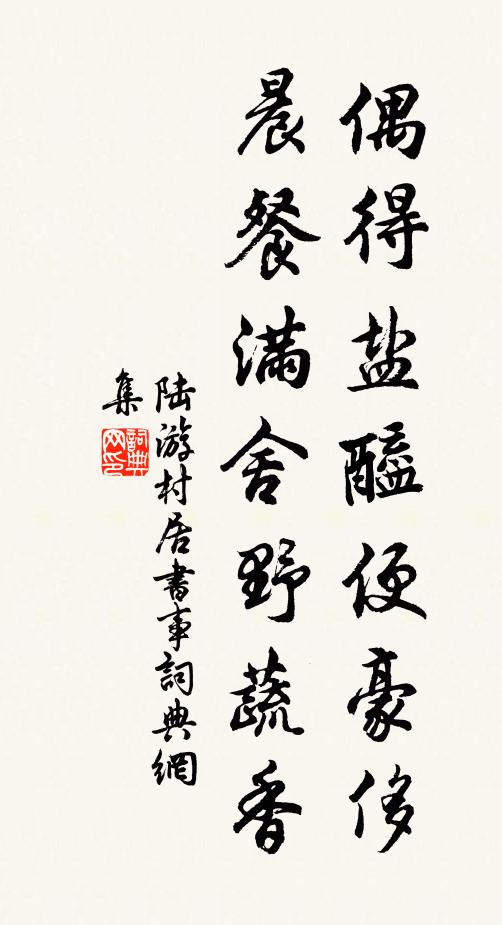 偶得盐醯便豪侈
晨餐满舍野蔬香
陆游村居書事詞典網
集
詞典网印